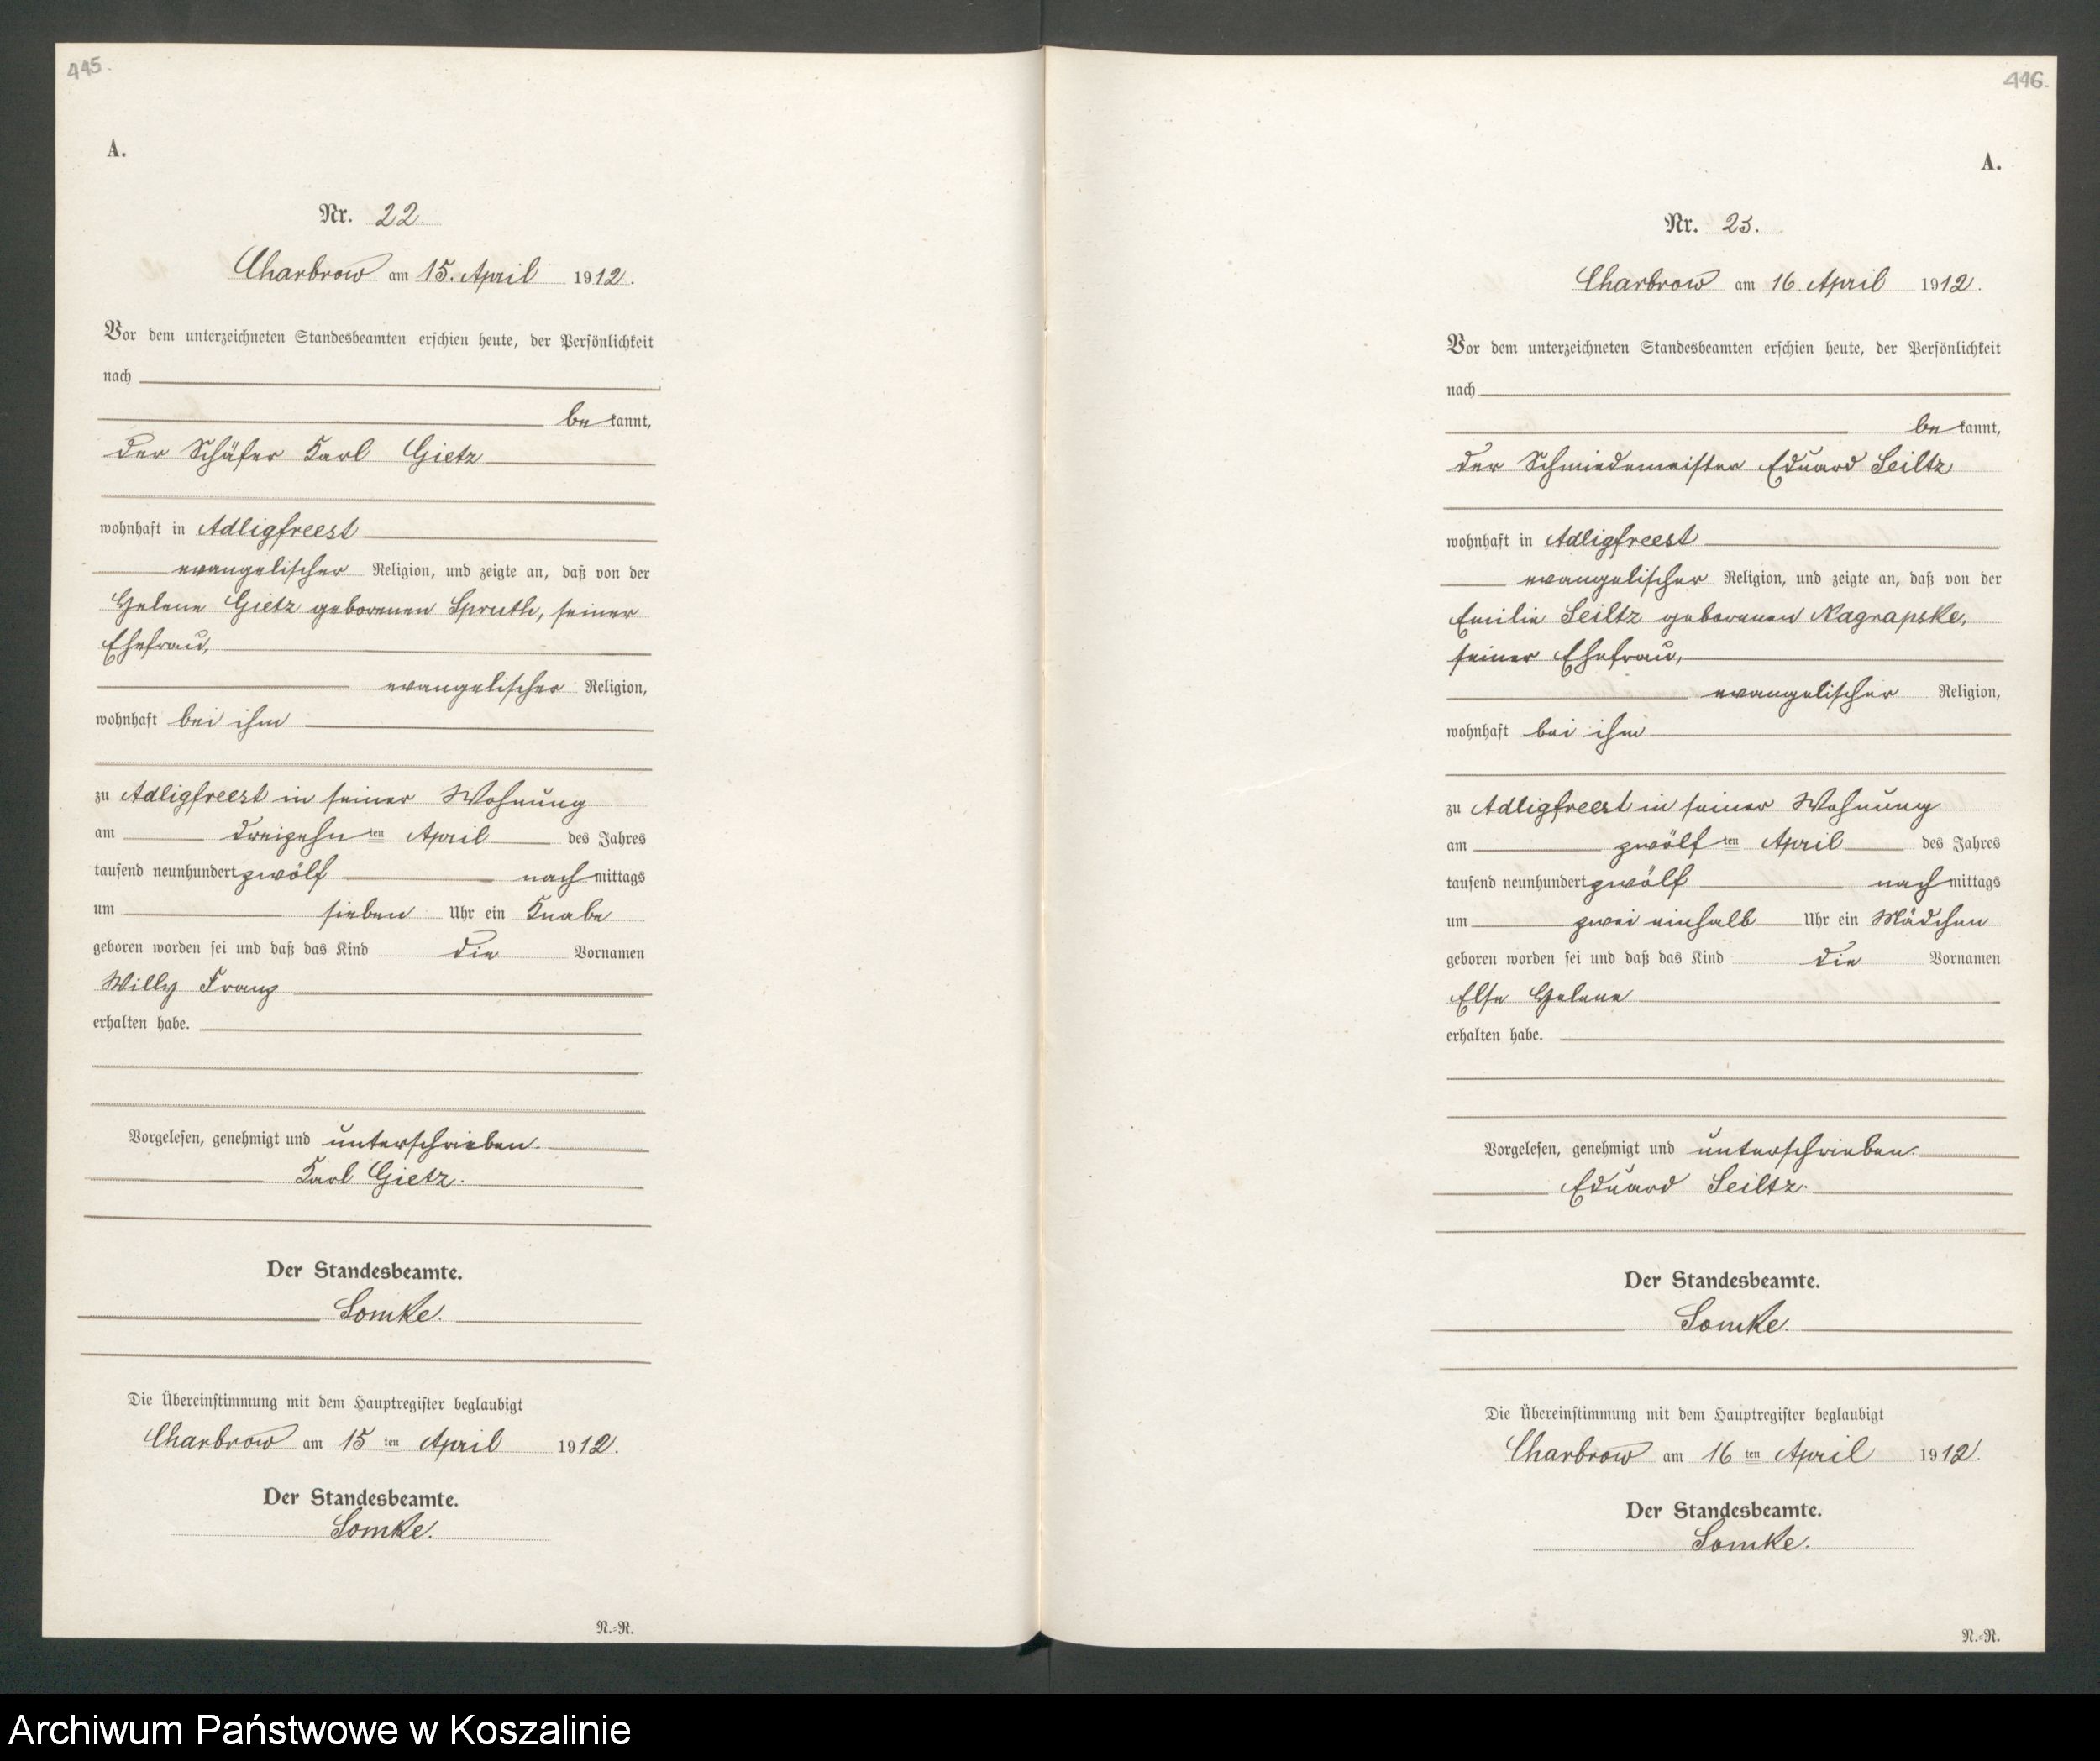 445.
A.
Nr. 22.
Charbrow am 15. April 1912.
Vor dem unterzeichneten Standesbeamten erschien heute, der Persönlichkeit
nach
be kannt,
der Schäfer Karl Gietz
wohnhaft in Adligfreest
evangelischer Religion, und zeigte an, daß von der
Helene Gietz geborenen Spruth, seiner
Ehefrau,
evangelischer Religion,
wohnhaft bei ihm
zu Adligfreest in seiner Wohnung
am dreizehn ten April des Jahres
tausend neunhundert zwölf nach mittags
um sieben Uhr ein Knabe
geboren worden sei und daß das Kind die Vornamen
Willy Franz
erhalten habe.
Vorgelesen, genehmigt und unterschrieben.
Karl Gietz.
Der Standesbeamte.
Somke.
Die Übereinstimmung mit dem Hauptregister beglaubigt
Charbrow am 15 ten April 1912.
Der Standesbeamte.
Somke.
N.=R.
446.
A.
Nr. 23.
Charbrow am 16. April 1912.
Vor dem unterzeichneten Standesbeamten erschien heute, der Persönlichkeit
nach
be kannt,
der Schmiedemeister Eduard Seiltz
wohnhaft in Adligfreest
evangelischer Religion, und zeigte an, daß von der
Emilie Seiltz geborenen Nagrapske,
seiner Ehefrau,
evangelischer Religion,
wohnhaft bei ihm
zu Adligfreest in seiner Wohnung
am zwölf ten April des Jahres
tausend neunhundert zwölf nach mittags
um zwei einhalb Uhr ein Mädchen
geboren worden sei und daß das Kind die Vornamen
Else Helene
erhalten habe.
Vorgelesen, genehmigt und unterschrieben.
Eduard Seiltz.
Der Standesbeamte.
Somke.
Die Übereinstimmung mit dem Hauptregister beglaubigt
Charbrow am 16 ten April 1912.
Der Standesbeamte.
Somke.
N.=R.
Archiwum Państwowe w Koszalinie